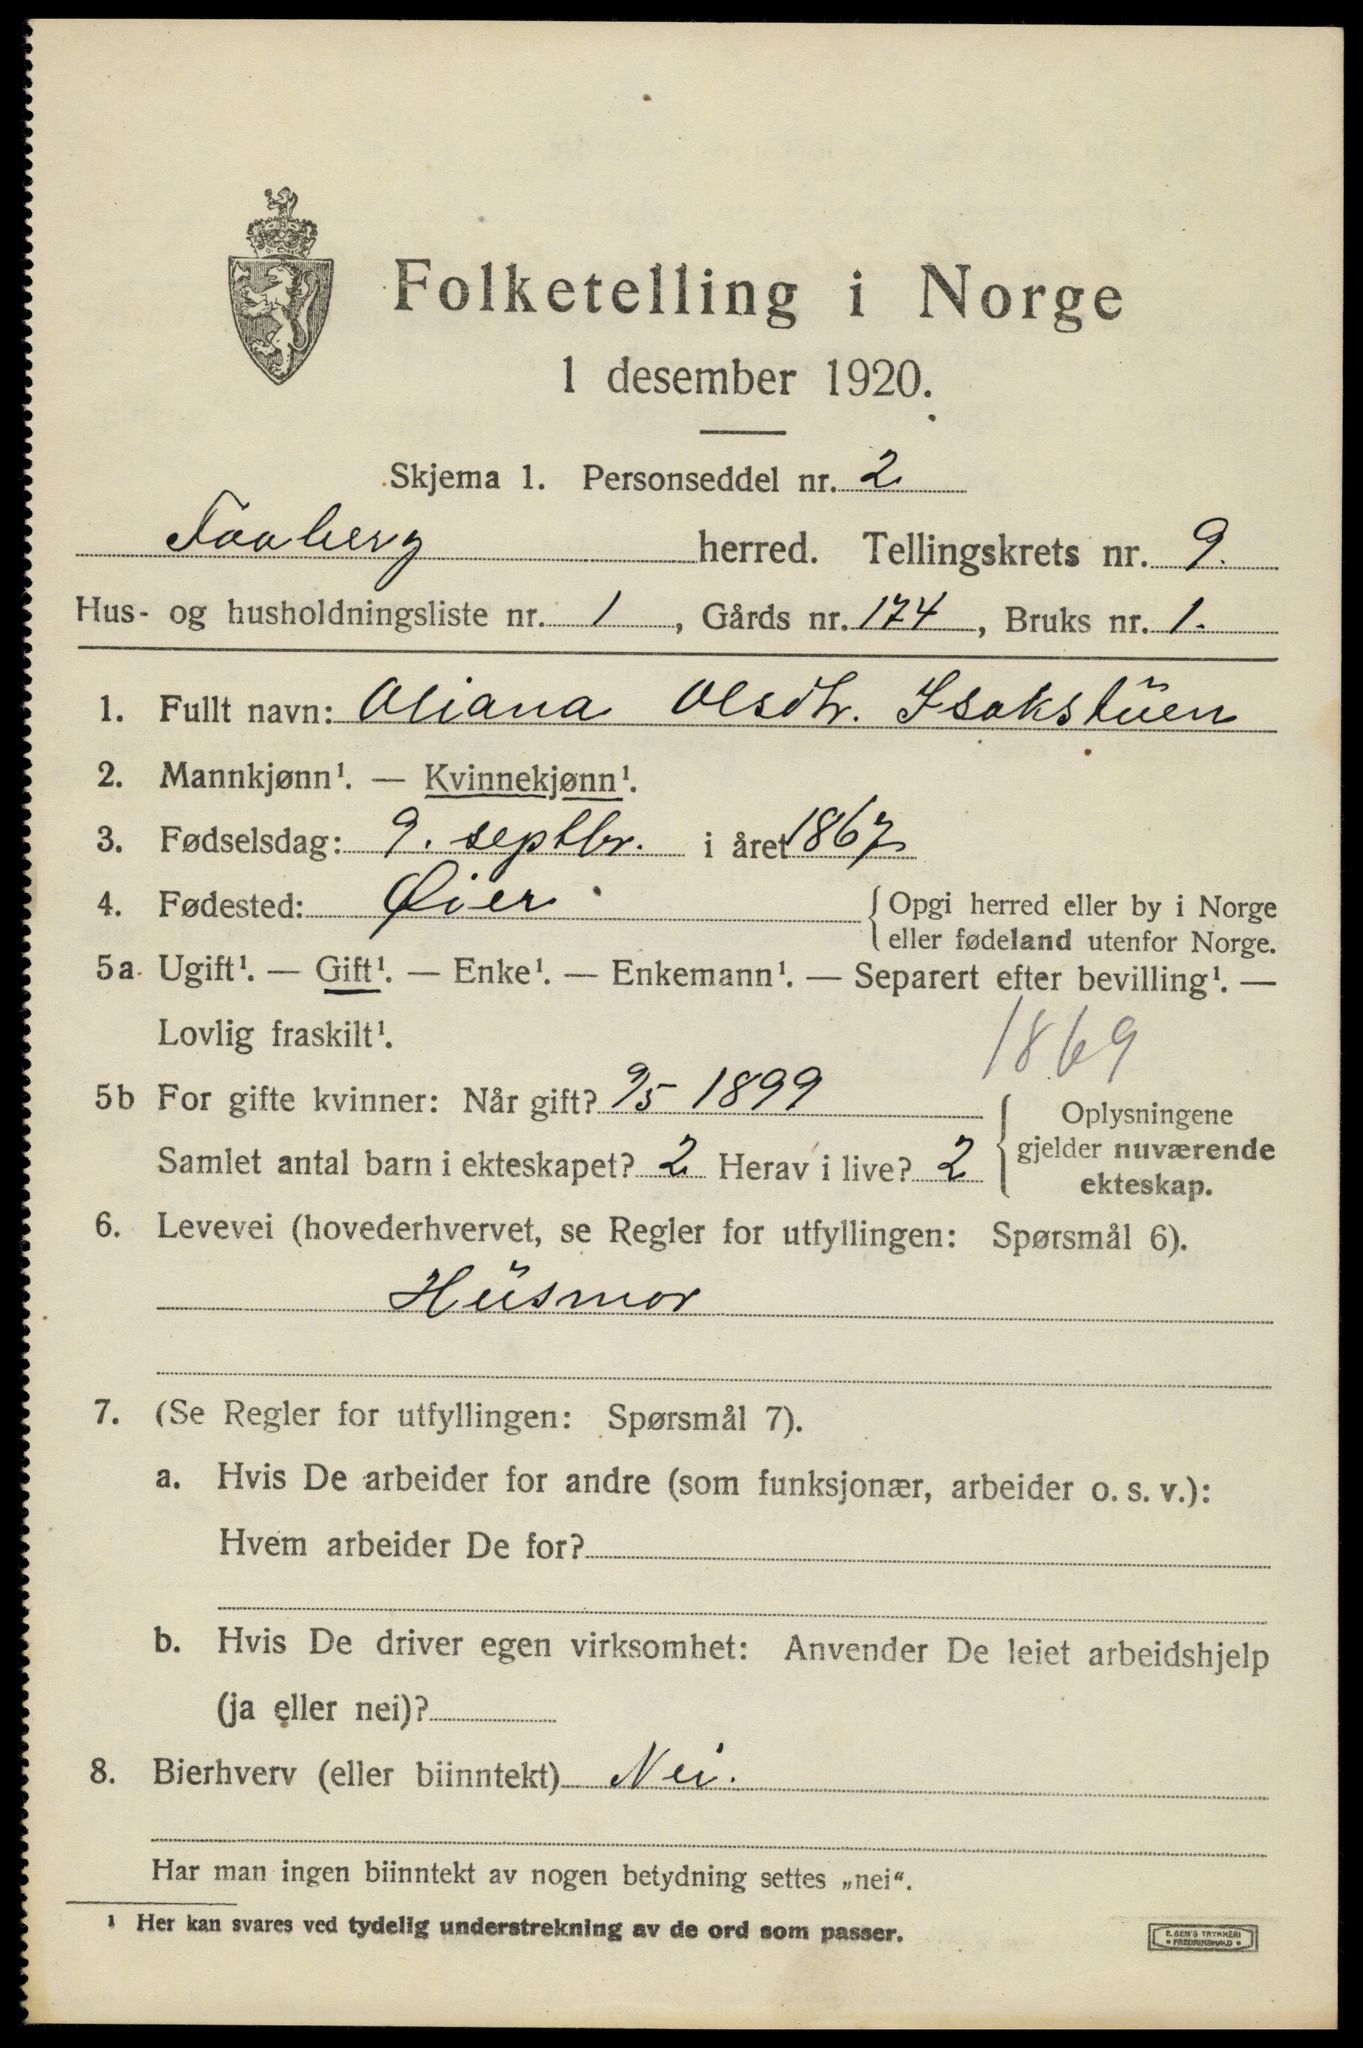 Folketelling i Norge
1 desember 1920.
Skjema 1. Personseddel nr. 2
Faaberg herred. Tellingskrets nr. 9.
Hus- og husholdningsliste nr. 1, Gårds nr. 174, Bruks nr. 1.
1. Fullt navn: Oliana Olsdtr. Isakstuen
2. Mannkjønn¹. — Kvinnekjønn¹.
3. Fødselsdag: 9. septbr. i året 1867
4. Fødested: Øier
Opgi herred eller by i Norge
eller fødeland utenfor Norge.
5a Ugift¹. — Gift¹. — Enke¹. — Enkemann¹. — Separert efter bevilling¹. —
Lovlig fraskilt¹.
1869
5b For gifte kvinner: Når gift? 9/5 1899
Samlet antal barn i ekteskapet? 2 Herav i live? 2
Oplysningene
gjelder nuværende
ekteskap.
6. Levevei (hovederhvervet, se Regler for utfyllingen: Spørsmål 6).
Husmor
7. (Se Regler for utfyllingen: Spørsmål 7).
a. Hvis De arbeider for andre (som funksjonær, arbeider o. s. v.):
Hvem arbeider De for?
b. Hvis De driver egen virksomhet: Anvender De leiet arbeidshjelp
(ja eller nei)?
8. Bierhverv (eller biinntekt) Nei.
Har man ingen biinntekt av nogen betydning settes „nei“.
¹ Her kan svares ved tydelig understrekning av de ord som passer.
E. SEM'S TRYKKERI
FREDRIKSHALD